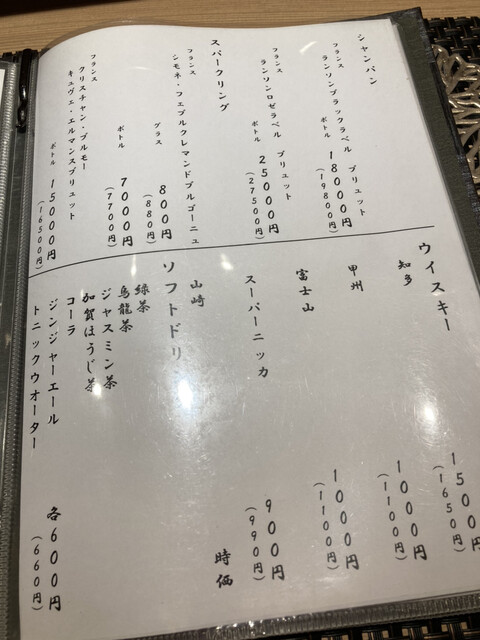 シャンパン
フランス
ランソンブラックラベル ブリュット
ボトル 18000円
(19800円)
フランス
ランソンロゼラベル ブリュット
ボトル 25000円
(27500円)
スパークリング
フランス
シモネ・フェブルクレマンドブルゴーニュ
グラス 800円
(880円)
ボトル 7000円
(7700円)
フランス
クリスチャン・ブルモー
キュヴェ・エルマンスブリュット
ボトル 15000円
(16500円)
ウイスキー
知多 1500円
(1650円)
甲州 1000円
(1100円)
富士山 1000円
(1100円)
スーパーニッカ 900円
(990円)
山崎 時価
ソフトドリ
緑茶
烏龍茶
ジャスミン茶
加賀ほうじ茶
コーラ
ジンジャーエール
トニックウオーター 各600円
(660円)